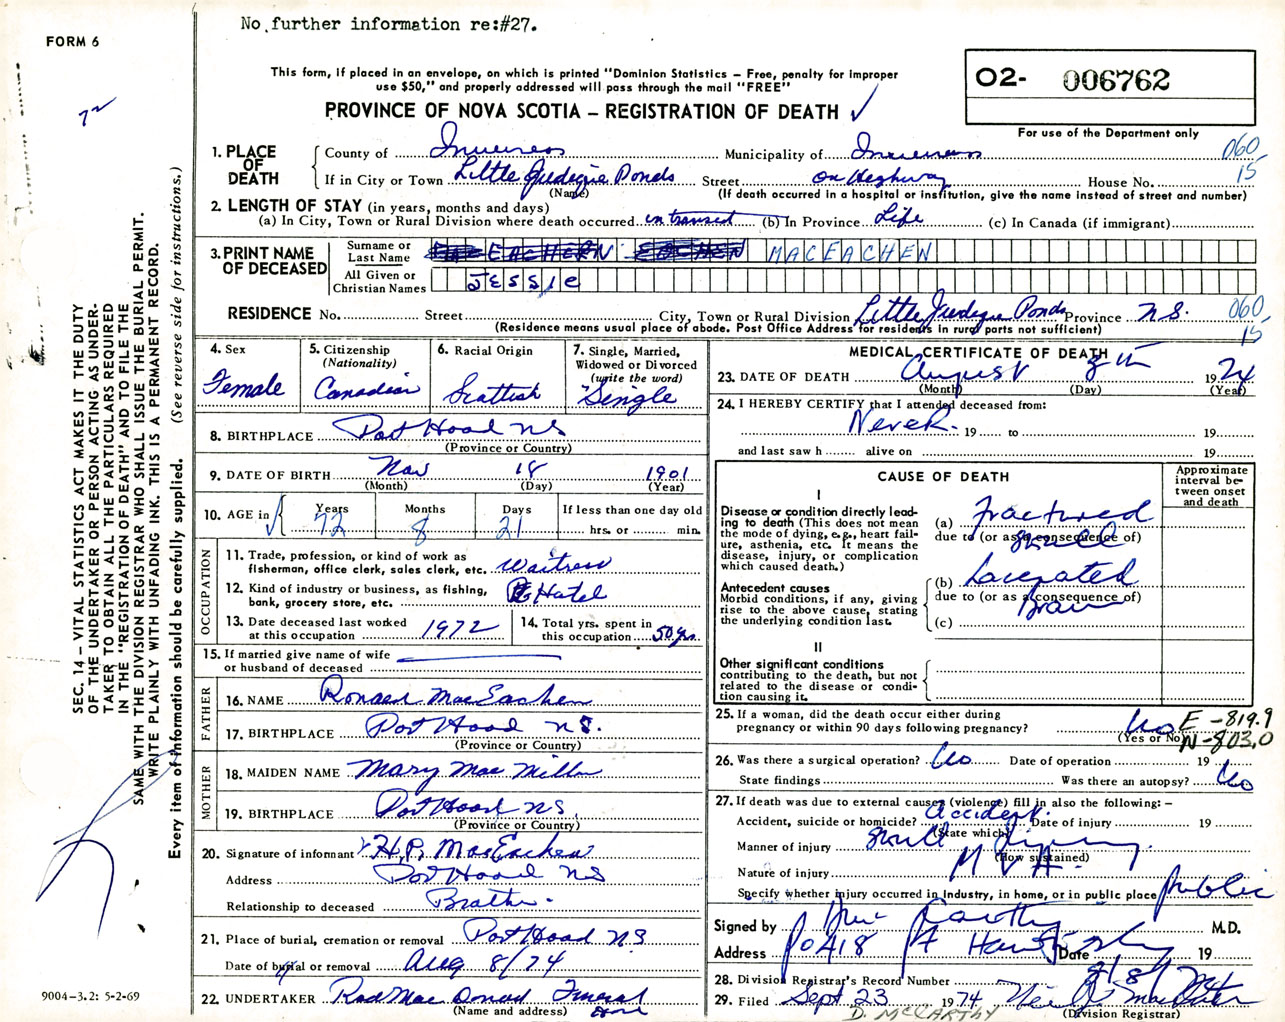 No further information re:#27.
FORM 6
72
This form, if placed in an envelope, on which is printed "Dominion Statistics – Free, penalty for improper
use $50," and properly addressed will pass through the mail "FREE"
PROVINCE OF NOVA SCOTIA – REGISTRATION OF DEATH ✓
02- 006762
For use of the Department only
1. PLACE OF DEATH
County of Inverness Municipality of Inverness 060
If in City or Town Little Judique Ponds Street on Highway House No. 15
(Name) (If death occurred in a hospital or institution, give the name instead of street and number)
2. LENGTH OF STAY (in years, months and days)
(a) In City, Town or Rural Division where death occurred in transit (b) In Province Life (c) In Canada (if immigrant)
3. PRINT NAME OF DECEASED
Surname or Last Name EACHERN EACHEN MACEACHEN
All Given or Christian Names JESSIE
RESIDENCE No. Street City, Town or Rural Division Little Judique Ponds Province N.S. 060
15
(Residence means usual place of abode. Post Office Address for residents in rural parts not sufficient)
4. Sex Female
5. Citizenship (Nationality) Canadian
6. Racial Origin Scottish
7. Single, Married, Widowed or Divorced (write the word) Single
8. BIRTHPLACE Port Hood NS
(Province or Country)
9. DATE OF BIRTH Nov 18 1901
(Month) (Day) (Year)
10. AGE in Years 72 Months 8 Days 21 If less than one day old hrs. or min.
OCCUPATION
11. Trade, profession, or kind of work as
fisherman, office clerk, sales clerk, etc. Waitress
12. Kind of industry or business, as fishing,
bank, grocery store, etc. Hotel
13. Date deceased last worked
at this occupation 1972
14. Total yrs. spent in
this occupation 50 yrs
15. If married give name of wife
or husband of deceased
FATHER
16. NAME Ronald MacEachen
17. BIRTHPLACE Port Hood N.S.
(Province or Country)
MOTHER
18. MAIDEN NAME Mary MacMillan
19. BIRTHPLACE Port Hood NS.
(Province or Country)
20. Signature of informant H.P. MacEachen
Address Port Hood NS
Relationship to deceased Brother
21. Place of burial, cremation or removal Port Hood NS
Date of burial or removal Aug 8/74
22. UNDERTAKER Rod MacDonald Funeral Home
(Name and address)
MEDICAL CERTIFICATE OF DEATH
23. DATE OF DEATH August 8th 1974
(Month) (Day) (Year)
24. I HEREBY CERTIFY that I attended deceased from:
Never. 19 to 19
and last saw h alive on 19
CAUSE OF DEATH
Approximate interval between onset and death
I
Disease or condition directly leading to death (This does not mean the mode of dying, e.g., heart failure, asthenia, etc. It means the disease, injury, or complication which caused death.)
(a) Fractured
due to (or as a consequence of)
Skull
Antecedent causes
Morbid conditions, if any, giving rise to the above cause, stating the underlying condition last.
(b) Lacerated
due to (or as a consequence of)
Brain
(c)
II
Other significant conditions
contributing to the death, but not related to the disease or condition causing it.
25. If a woman, did the death occur either during
pregnancy or within 90 days following pregnancy? No
(Yes or No)
E-819.9
N-803.0
26. Was there a surgical operation? No Date of operation 19
State findings Was there an autopsy? No
27. If death was due to external causes (violence) fill in also the following: –
Accident, suicide or homicide? Accident. Date of injury 19
(State which)
Manner of injury Skull Injury.
(How sustained)
Nature of injury M V A.
Specify whether injury occurred in Industry, in home, or in public place public
Signed by M.D.
Address PO 418 Pt Hawkesbury Date 8/8/74 19
28. Division Registrar's Record Number
29. Filed Sept 23 1974
(Division Registrar)
D. McCARTHY
SEC. 14 – VITAL STATISTICS ACT MAKES IT THE DUTY
OF THE UNDERTAKER OR PERSON ACTING AS UNDER-
TAKER TO OBTAIN ALL THE PARTICULARS REQUIRED
IN THE "REGISTRATION OF DEATH" AND TO FILE THE
SAME WITH THE DIVISION REGISTRAR WHO SHALL ISSUE THE BURIAL PERMIT.
WRITE PLAINLY WITH UNFADING INK. THIS IS A PERMANENT RECORD.
Every item of information should be carefully supplied. (See reverse side for instructions.)
9004-3.2: 5-2-69